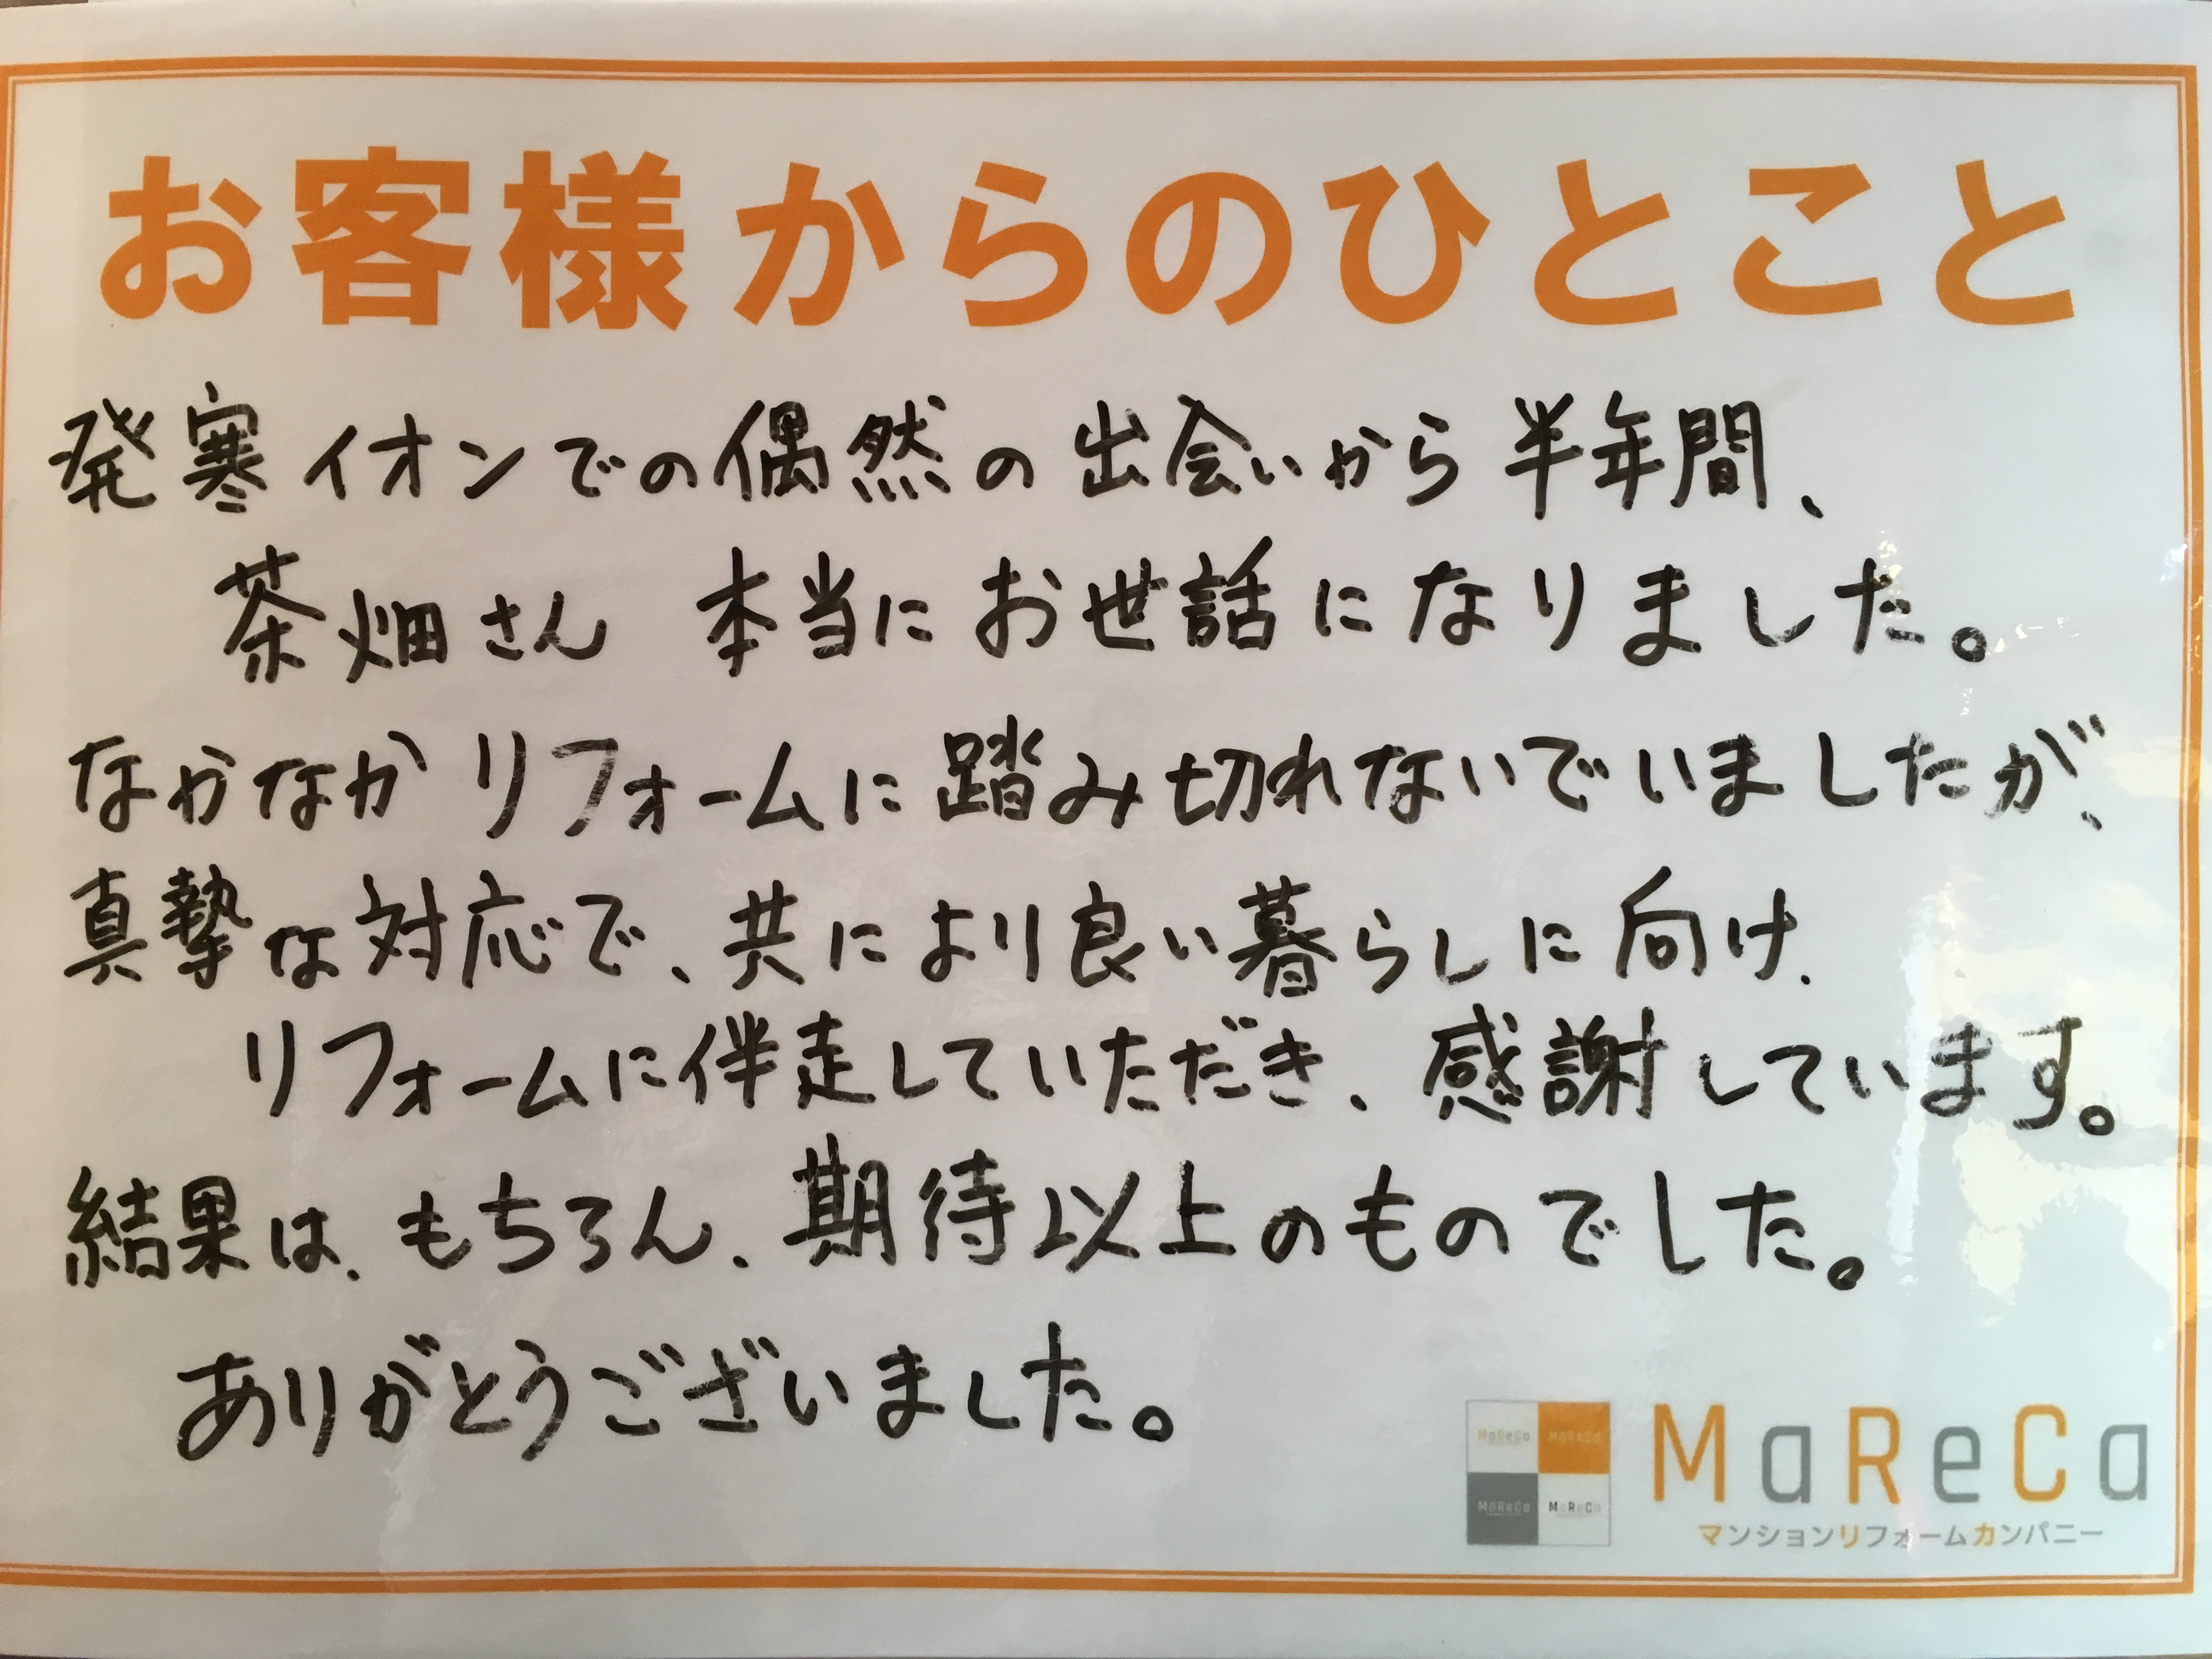 お客様からのひとこと
発寒イオンでの偶然の出会いから半年間、
茶畑さん 本当にお世話になりました。
なかなかリフォームに踏み切れないでいましたが、
真摯な対応で、共により良い暮らしに向け、
リフォームに伴走していただき、感謝しています。
結果は、もちろん、期待以上のものでした。
ありがとうございました。
MaReCa MaReCa
MaReCa MaReCa
MaReCa
マンションリフォームカンパニー